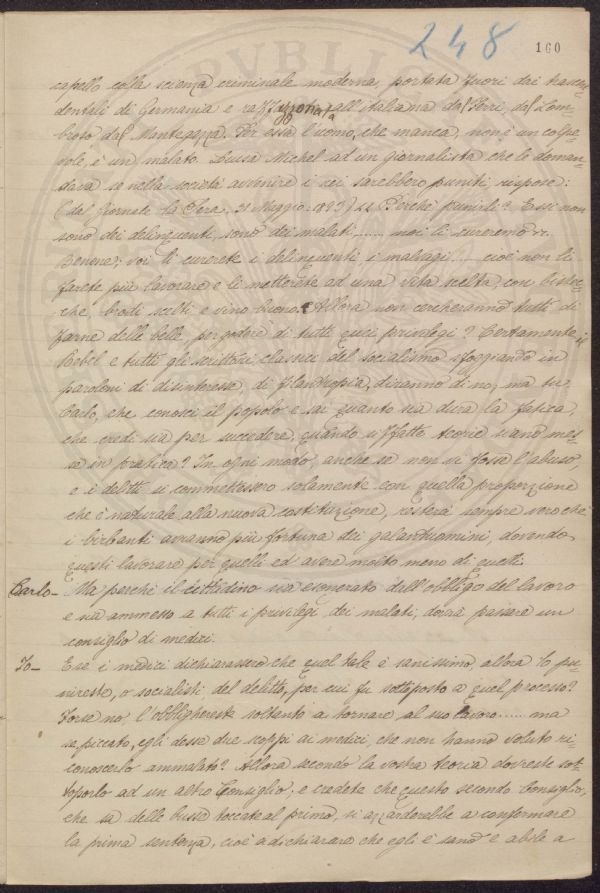 248 160
capello colla scienza criminale moderna, portata fuori dai trascen
dentali di Germania e raffazzonata all'italiana dal Ferri, dal Lom-
broso dal Mantegazza. Per essa l'uomo, che manca, non è un colpe-
vole, è un malato. Luisa Michel ad un giornalista che le doman-
dava se nella società avvenire i rei sarebbero puniti, rispose:
(dal giornale la Sera, 31 Maggio 1893) "Perchè punirli? Essi non
sono dei delinquenti, sono dei malati,...... noi li cureremo".
Benone; voi li curerete i delinquenti i malvagi... cioè non li
farete più lavorare e li metterete ad una vita scelta, con bistec-
che, brodi scelti e vino buono. Allora non cercheranno tutti di
farne delle belle, per godere di tutti quei privilegi? Certamente il
Bebel e tutti gli scrittori classici del socialismo sfoggiando in
paroloni di disinteresse, di filantropia, diranno di no, ma tu
Carlo, che conosci il popolo e sai quanto sia dura la fatica,
che credi sia per succedere, quando siffatte teorie siano mes-
se in pratica? In ogni modo, anche se non vi fosse l'abuso,
e i delitti si commettessero solamente con quella proporzione
che è naturale alla nuova costituzione, resterà sempre vero che
i birbanti avranno più fortuna dei galantuomini, dovendo
questi lavorare per quelli ed avere molto meno di quelli.
Carlo- Ma perchè il cittadino sia esonerato dall'obbligo del lavoro
e sia ammesso a tutti i privilegi dei malati, dovrà passare un
consiglio di medici.
Io- E se i medici dichiarassero che quel tale è sanissimo, allora lo pu-
nireste, o socialisti, del delitto, per cui fu sottoposto a quel processo?
Forse no, l'obblighereste soltanto a tornare al suo lavoro...... ma
se piccato, egli desse due scoppi ai medici, che non hanno voluto ri-
conoscerlo ammalato? Allora secondo la vostra teoria dovreste sot-
toporlo ad un altro Consiglio, e credete che questo secondo Consiglio,
che sa delle busse toccate al primo, si azzarderebbe a confermare
la prima sentenza, cioè a dichiarare che egli è sano e abile a